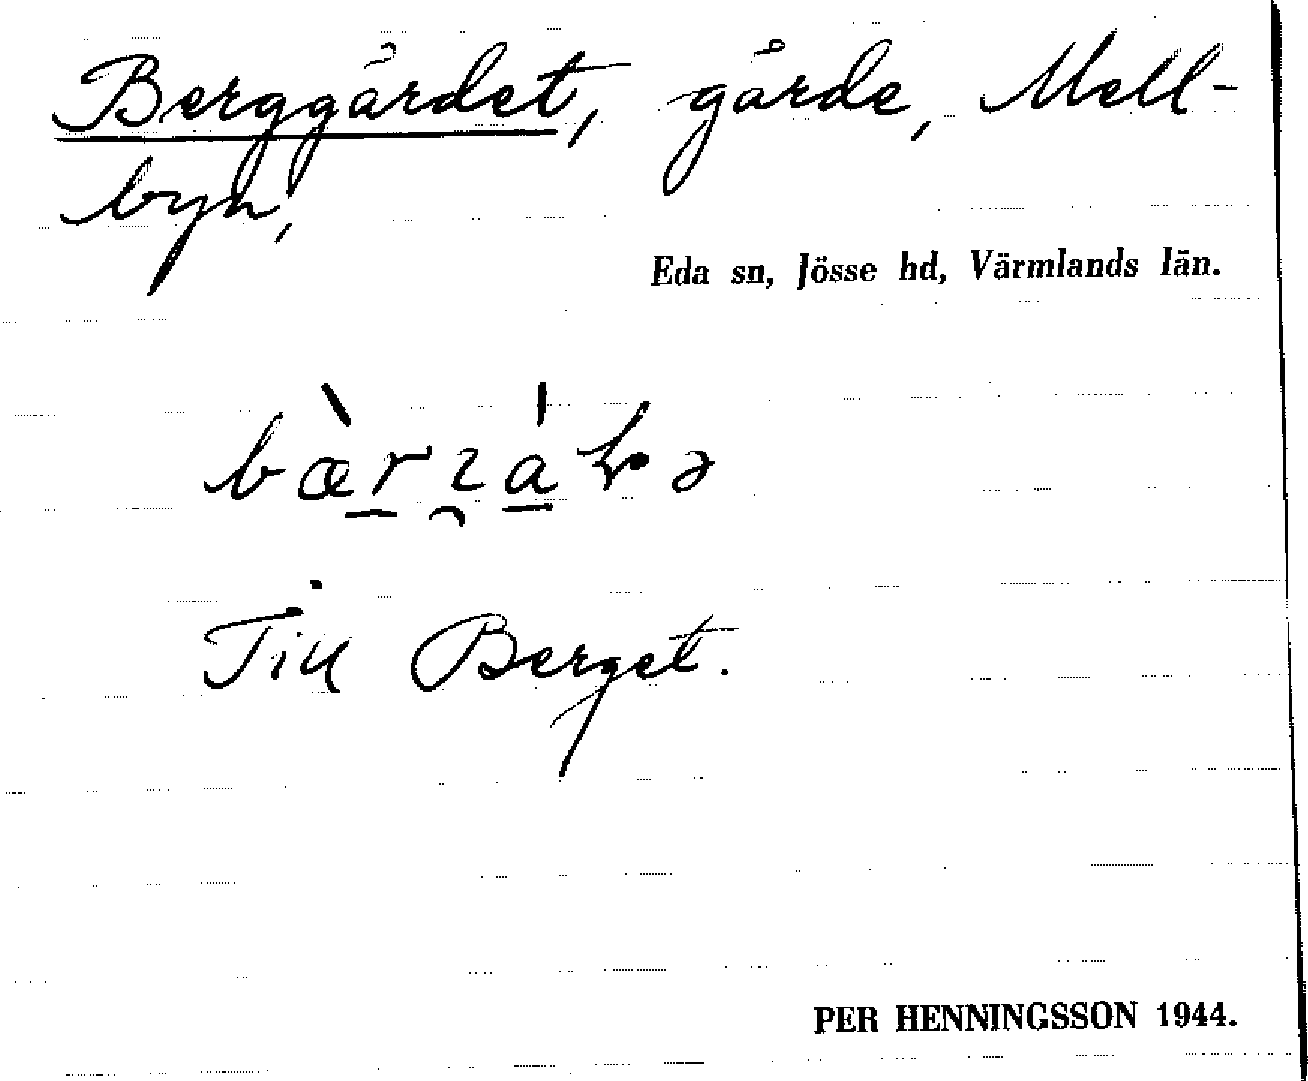 Berggårdet, gårde, Mell-
byn,
Eda sn, Jösse hd, Värmlands län.
Till Berget.
PER HENNINGSSON 1944.